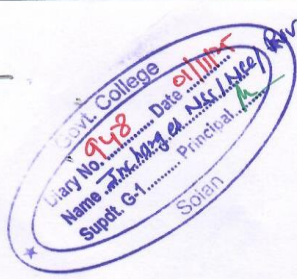 Govt. College
Diary No. 948 Date 01/11/25
Name Incharges NSS/NCC/
Supdt. G-1 Principal
Solan